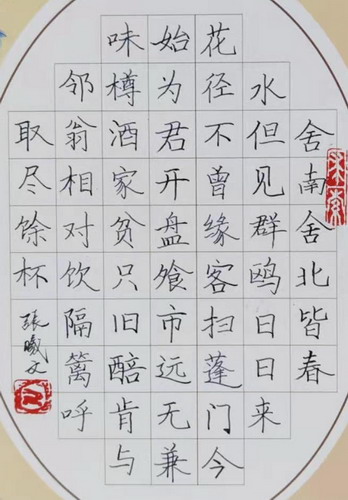 舍南舍北皆春
水但见群鸥日日来
花径不曾缘客扫蓬门今
始为君开盘飧市远无兼
味樽酒家贫只旧醅肯与
邻翁相对饮隔篱呼
取尽馀杯
张曦文